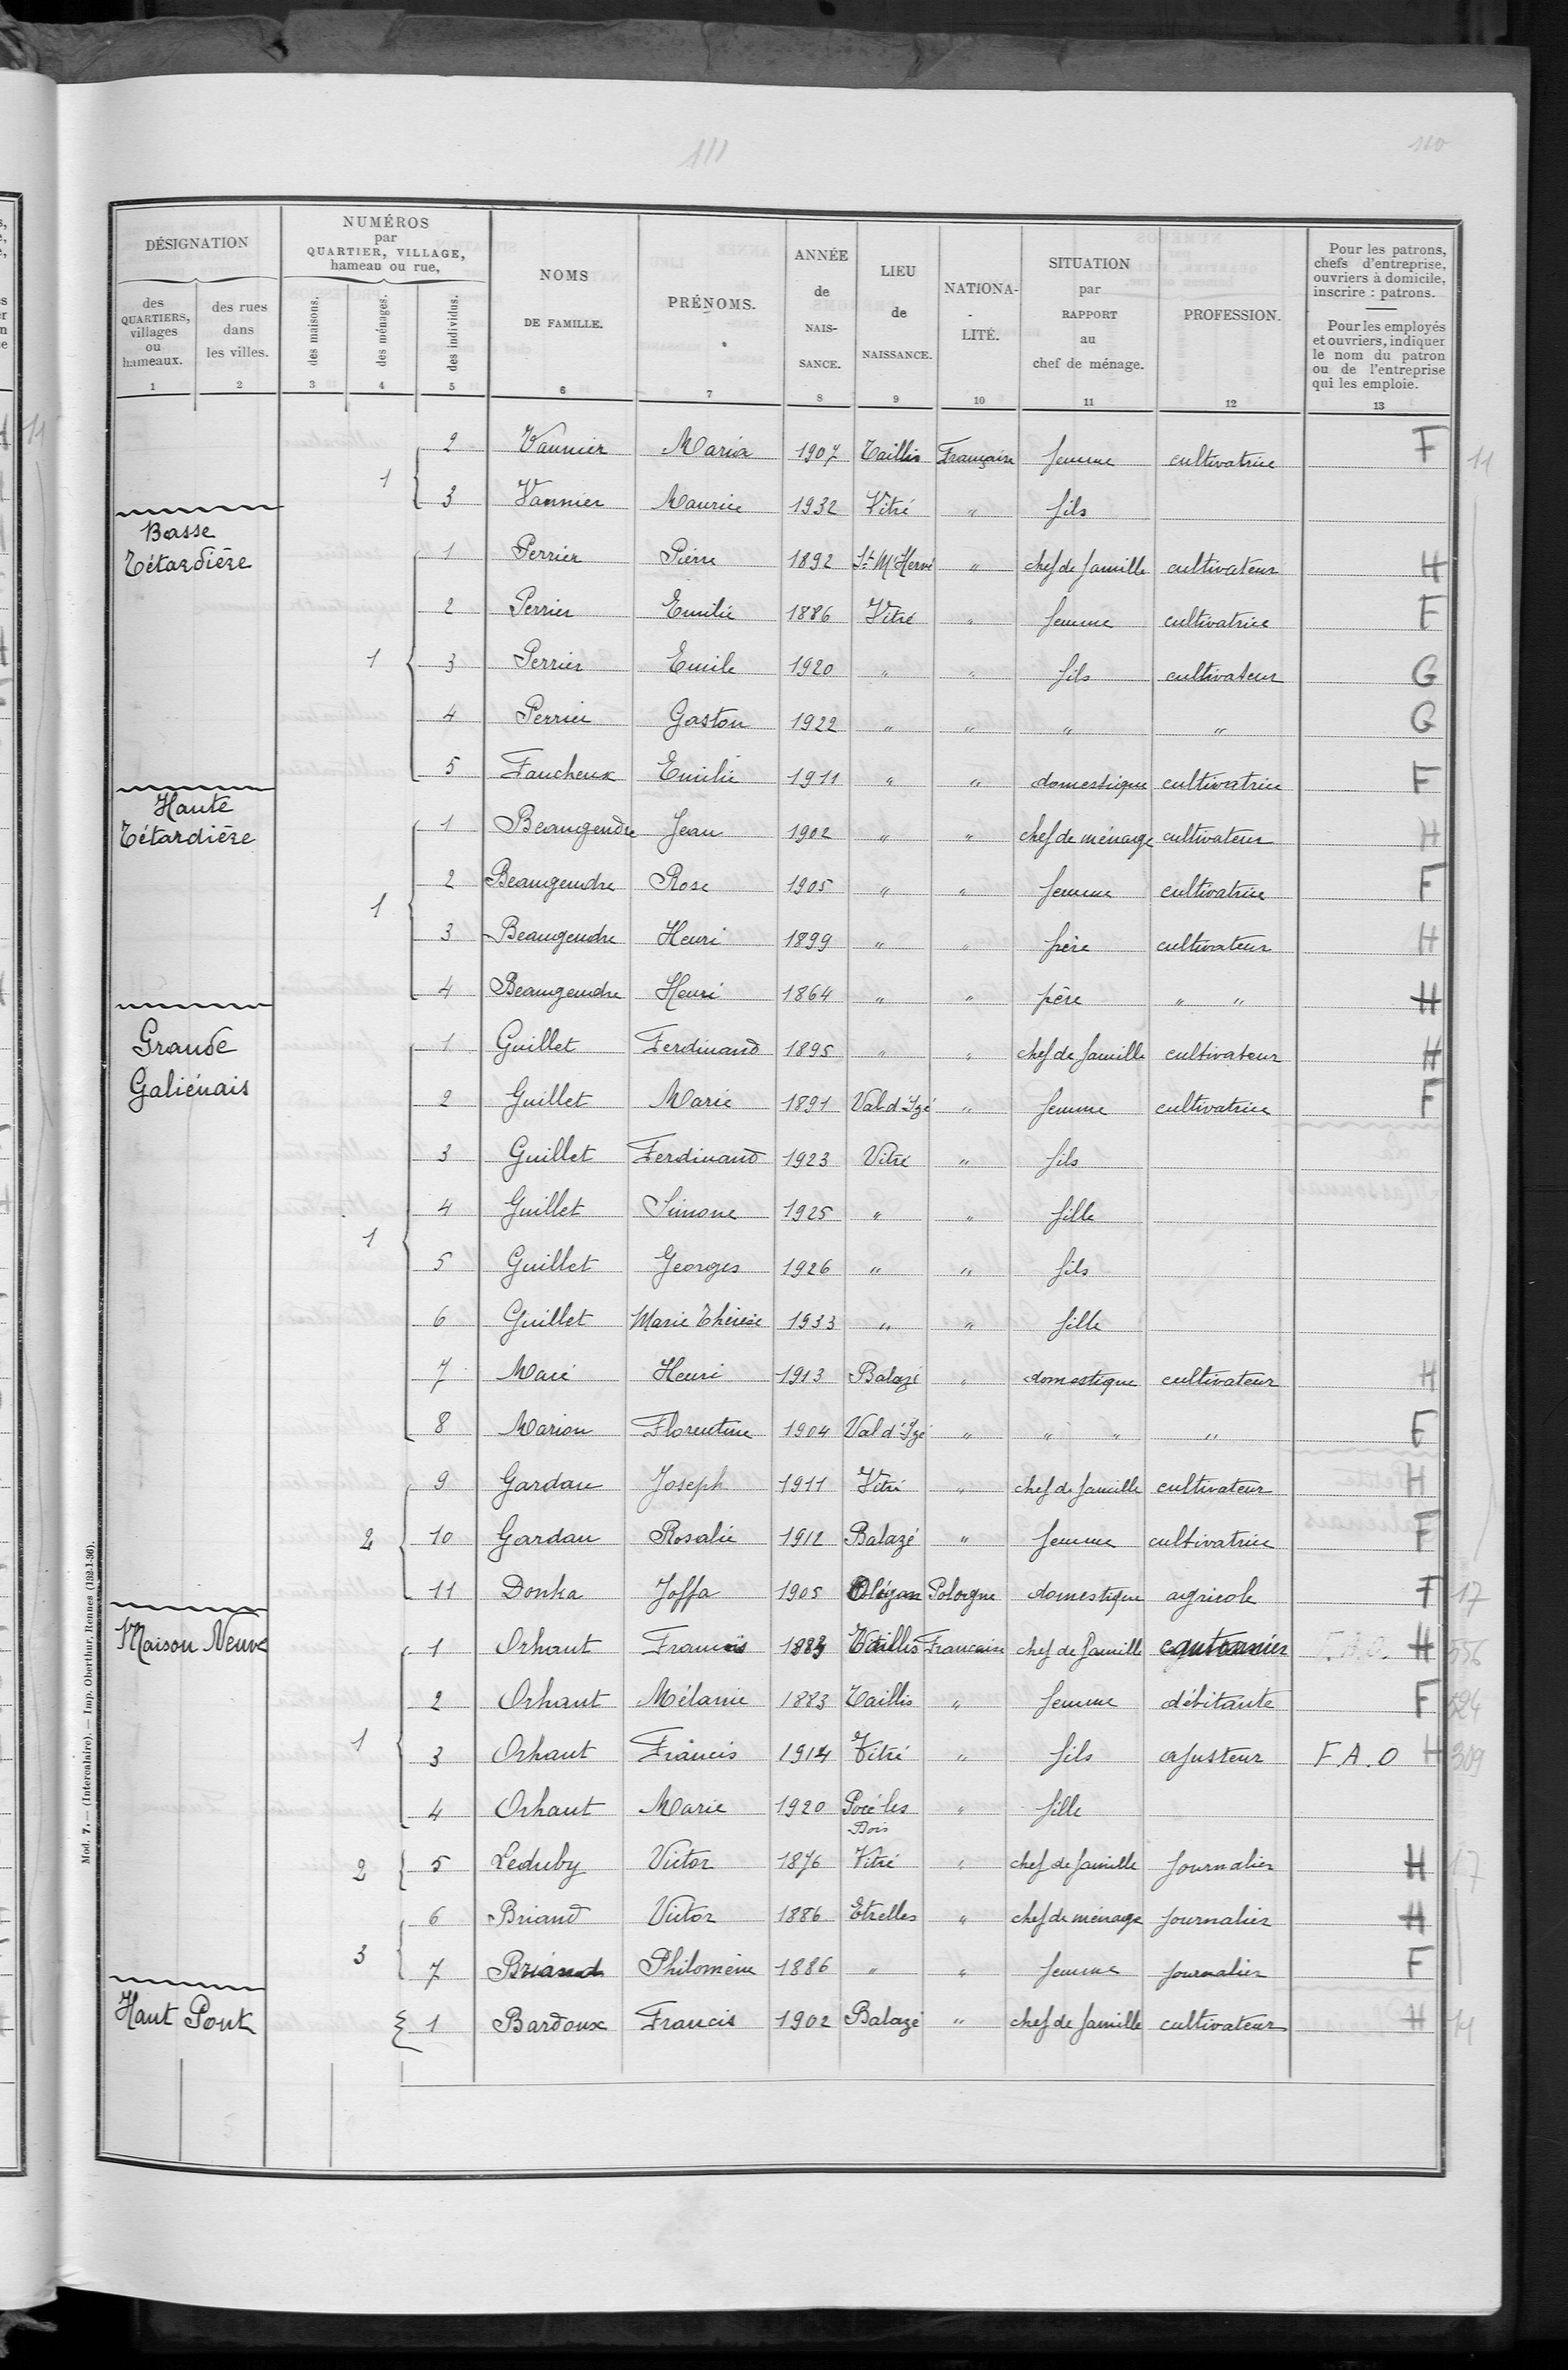 111
110
DÉSIGNATION
NUMÉROS
par
QUARTIER, VILLAGE,
hameau ou rue,
NOMS
DE FAMILLE.
PRÉNOMS.
ANNÉE
de
NAIS-
SANCE.
LIEU
de
NAISSANCE.
NATIONA-
LITÉ.
SITUATION
par
RAPPORT
au
chef de ménage.
PROFESSION.
Pour les patrons,
chefs d'entreprise,
ouvriers à domicile,
inscrire : patrons.
Pour les employés
et ouvriers, indiquer
le nom du patron
ou de l'entreprise
qui les emploie.
des
QUARTIERS,
villages
ou
hameaux.
des rues
dans
les villes.
des maisons.
des ménages.
des individus.
1 2 3 4 5 6 7 8 9 10 11 12 13
2 Vannier Maria 1907 Taillis Française femme cultivatrice F 11
1
3 Vannier Maurice 1932 Vitré " fils
Basse
Tétardière 1 Perrier Pierre 1892 St M Hervé " chef de famille cultivateur H
2 Perrier Emilie 1886 Vitré " femme cultivatrice F
1 3 Perrier Emile 1920 " " fils cultivateur G
4 Perrier Gaston 1922 " " " " G
5 Faucheux Emilie 1911 " " domestique cultivatrice F
Haute
Tétardière 1 Beaugendre Jean 1902 " " chef de ménage cultivateur H
2 Beaugendre Rose 1905 " " femme cultivatrice F
1
3 Beaugendre Henri 1899 " " frère cultivateur H
4 Beaugendre Henri 1864 " " père " " H
Grande
Galiénais
1 Guillet Ferdinand 1895 " " chef de famille cultivateur H
2 Guillet Marie 1891 Val d Izé " femme cultivatrice F
3 Guillet Ferdinand 1923 Vitré " fils
4 Guillet Simone 1925 " " fille
1
5 Guillet Georges 1926 " " fils
6 Guillet Marie Thérèse 1933 " " fille
7 Maré Henri 1913 Balazé " domestique cultivateur H
8 Marion Florentine 1904 Val d'Izé " " " " F
9 Gardan Joseph 1911 Vitré " chef de famille cultivateur H
2 10 Gardan Rosalie 1912 Balazé " femme cultivatrice F
11 Donka Joffa 1905 Pologne domestique agricole F 17
Maison Neuve 1 Orhant François 1883 Taillis Française chef de famille cantonnier H 556
2 Orhant Mélanie 1883 Taillis " femme débitante F 524
1 3 Orhant Francis 1914 Vitré " fils ajusteur F.A.O H 309
4 Orhant Marie 1920 Pocé les
Bois " fille
2 5 Leduby Victor 1876 Vitré " chef de famille journalier H 17
6 Briand Victor 1886 Etrelles " chef de ménage journalier H
3 7 Briand Philomène 1886 " " femme journalier F
Haut Pont 1 Bardoux Francis 1902 Balazé " chef de famille cultivateur H 11
Mod. 7. — (Intercalaire). — Imp. Oberthur, Rennes (132-1-36).